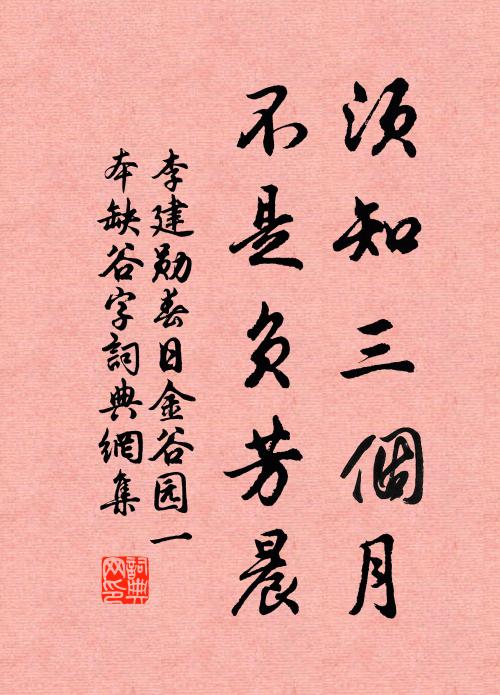 须知三個月
不是負芳晨
李建勋春日金谷园一
本缺谷字詞典網集
詞典网印